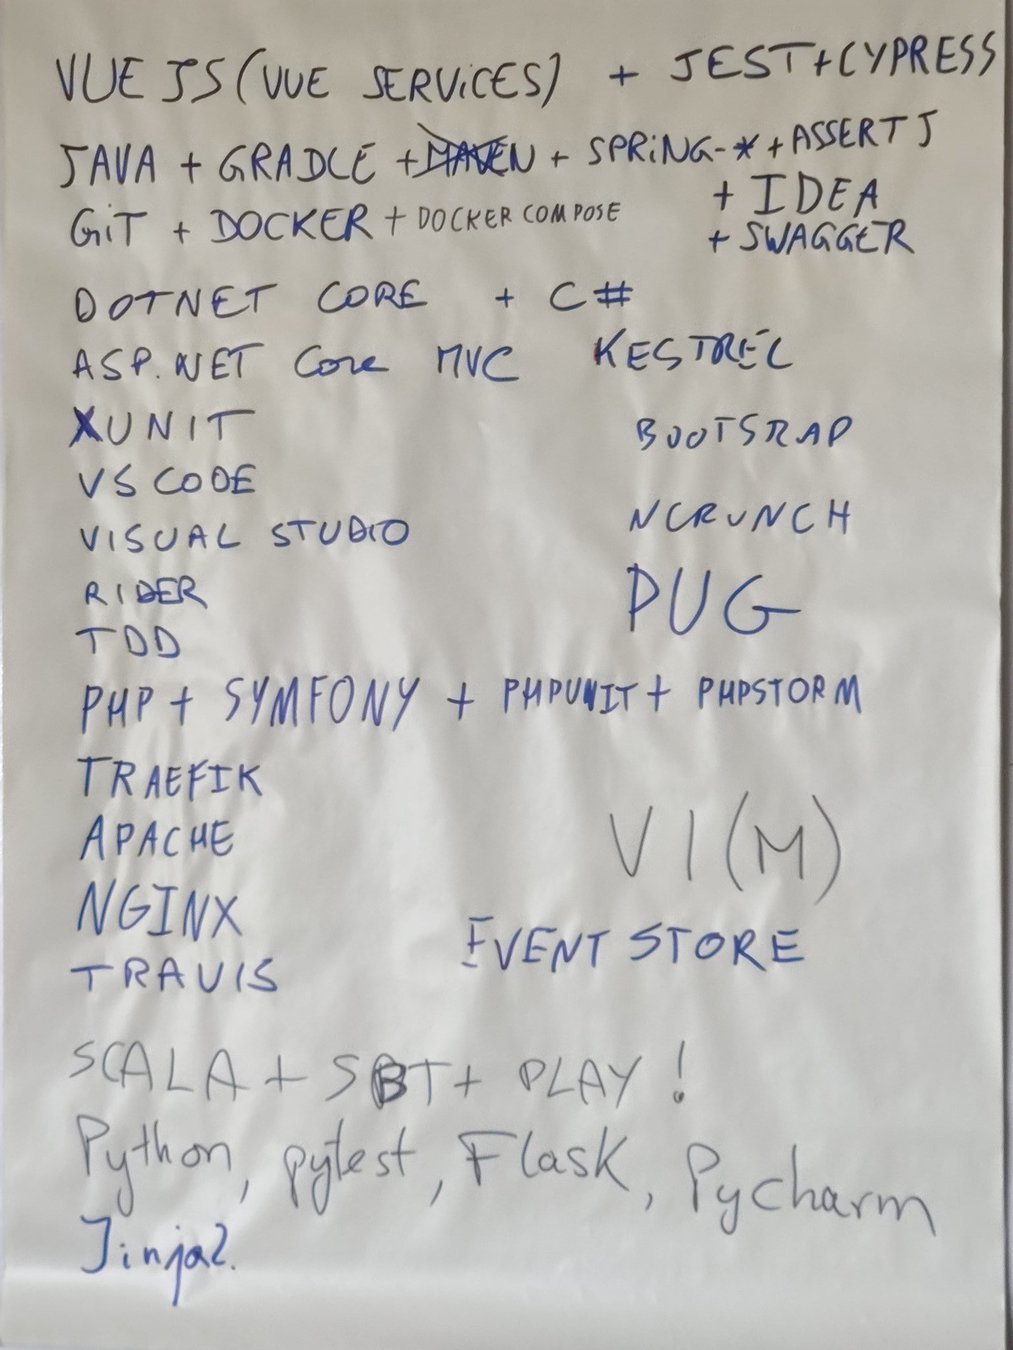 VUE JS (VUE SERVICES) + JEST + CYPRESS
JAVA + GRADLE + MAVEN + SPRING-* + ASSERTJ
+ IDEA
GIT + DOCKER + DOCKER COMPOSE
+ SWAGGER
DOTNET CORE + C#
ASP.NET Core MVC KESTREL
XUNIT
BOOTSRAP
VS CODE
NCRUNCH
VISUAL STUDIO
RIDER
PUG
TDD
PHP + SYMFONY + PHPUNIT + PHPSTORM
TRAEFIK
APACHE
VI(M)
NGINX
EVENT STORE
TRAVIS
SCALA + SBT + PLAY!
Python, pytest, Flask, Pycharm
Jinja2.